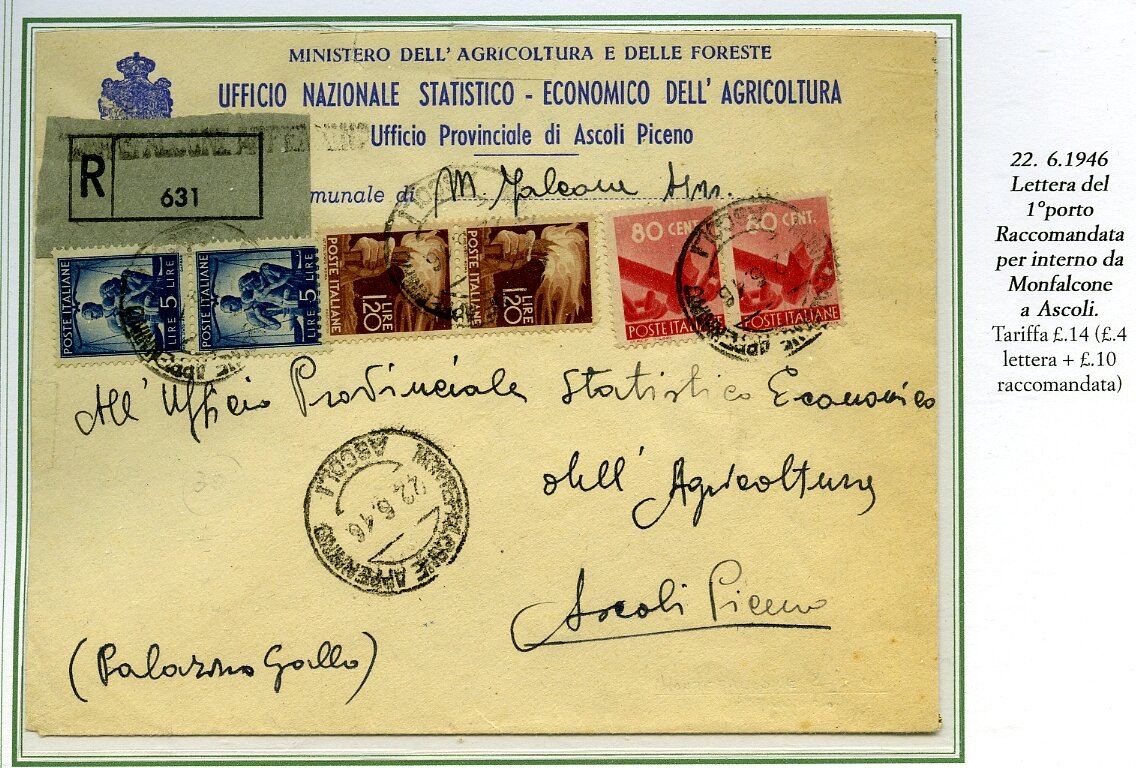 MINISTERO DELL'AGRICOLTURA E DELLE FORESTE
UFFICIO NAZIONALE STATISTICO - ECONOMICO DELL'AGRICOLTURA
Ufficio Provinciale di Ascoli Piceno
munale di M. Falcone App.
R
631
POSTE ITALIANE LIRE 5 LIRE
POSTE ITALIANE LIRE 5 LIRE
POSTE ITALIANE LIRE 1.20
POSTE ITALIANE LIRE 1.20
80 CENT. POSTE ITALIANE
80 CENT. POSTE ITALIANE
All'Ufficio Provinciale Statistico Economico
dell'Agricoltura
Ascoli Piceno
(Palazzino Gallo)
MONTEFALCONE APPENNINO
ASCOLI
22.6.46
22. 6.1946
Lettera del
1°porto
Raccomandata
per interno da
Monfalcone
a Ascoli.
Tariffa £.14 (£.4
lettera + £.10
raccomandata)